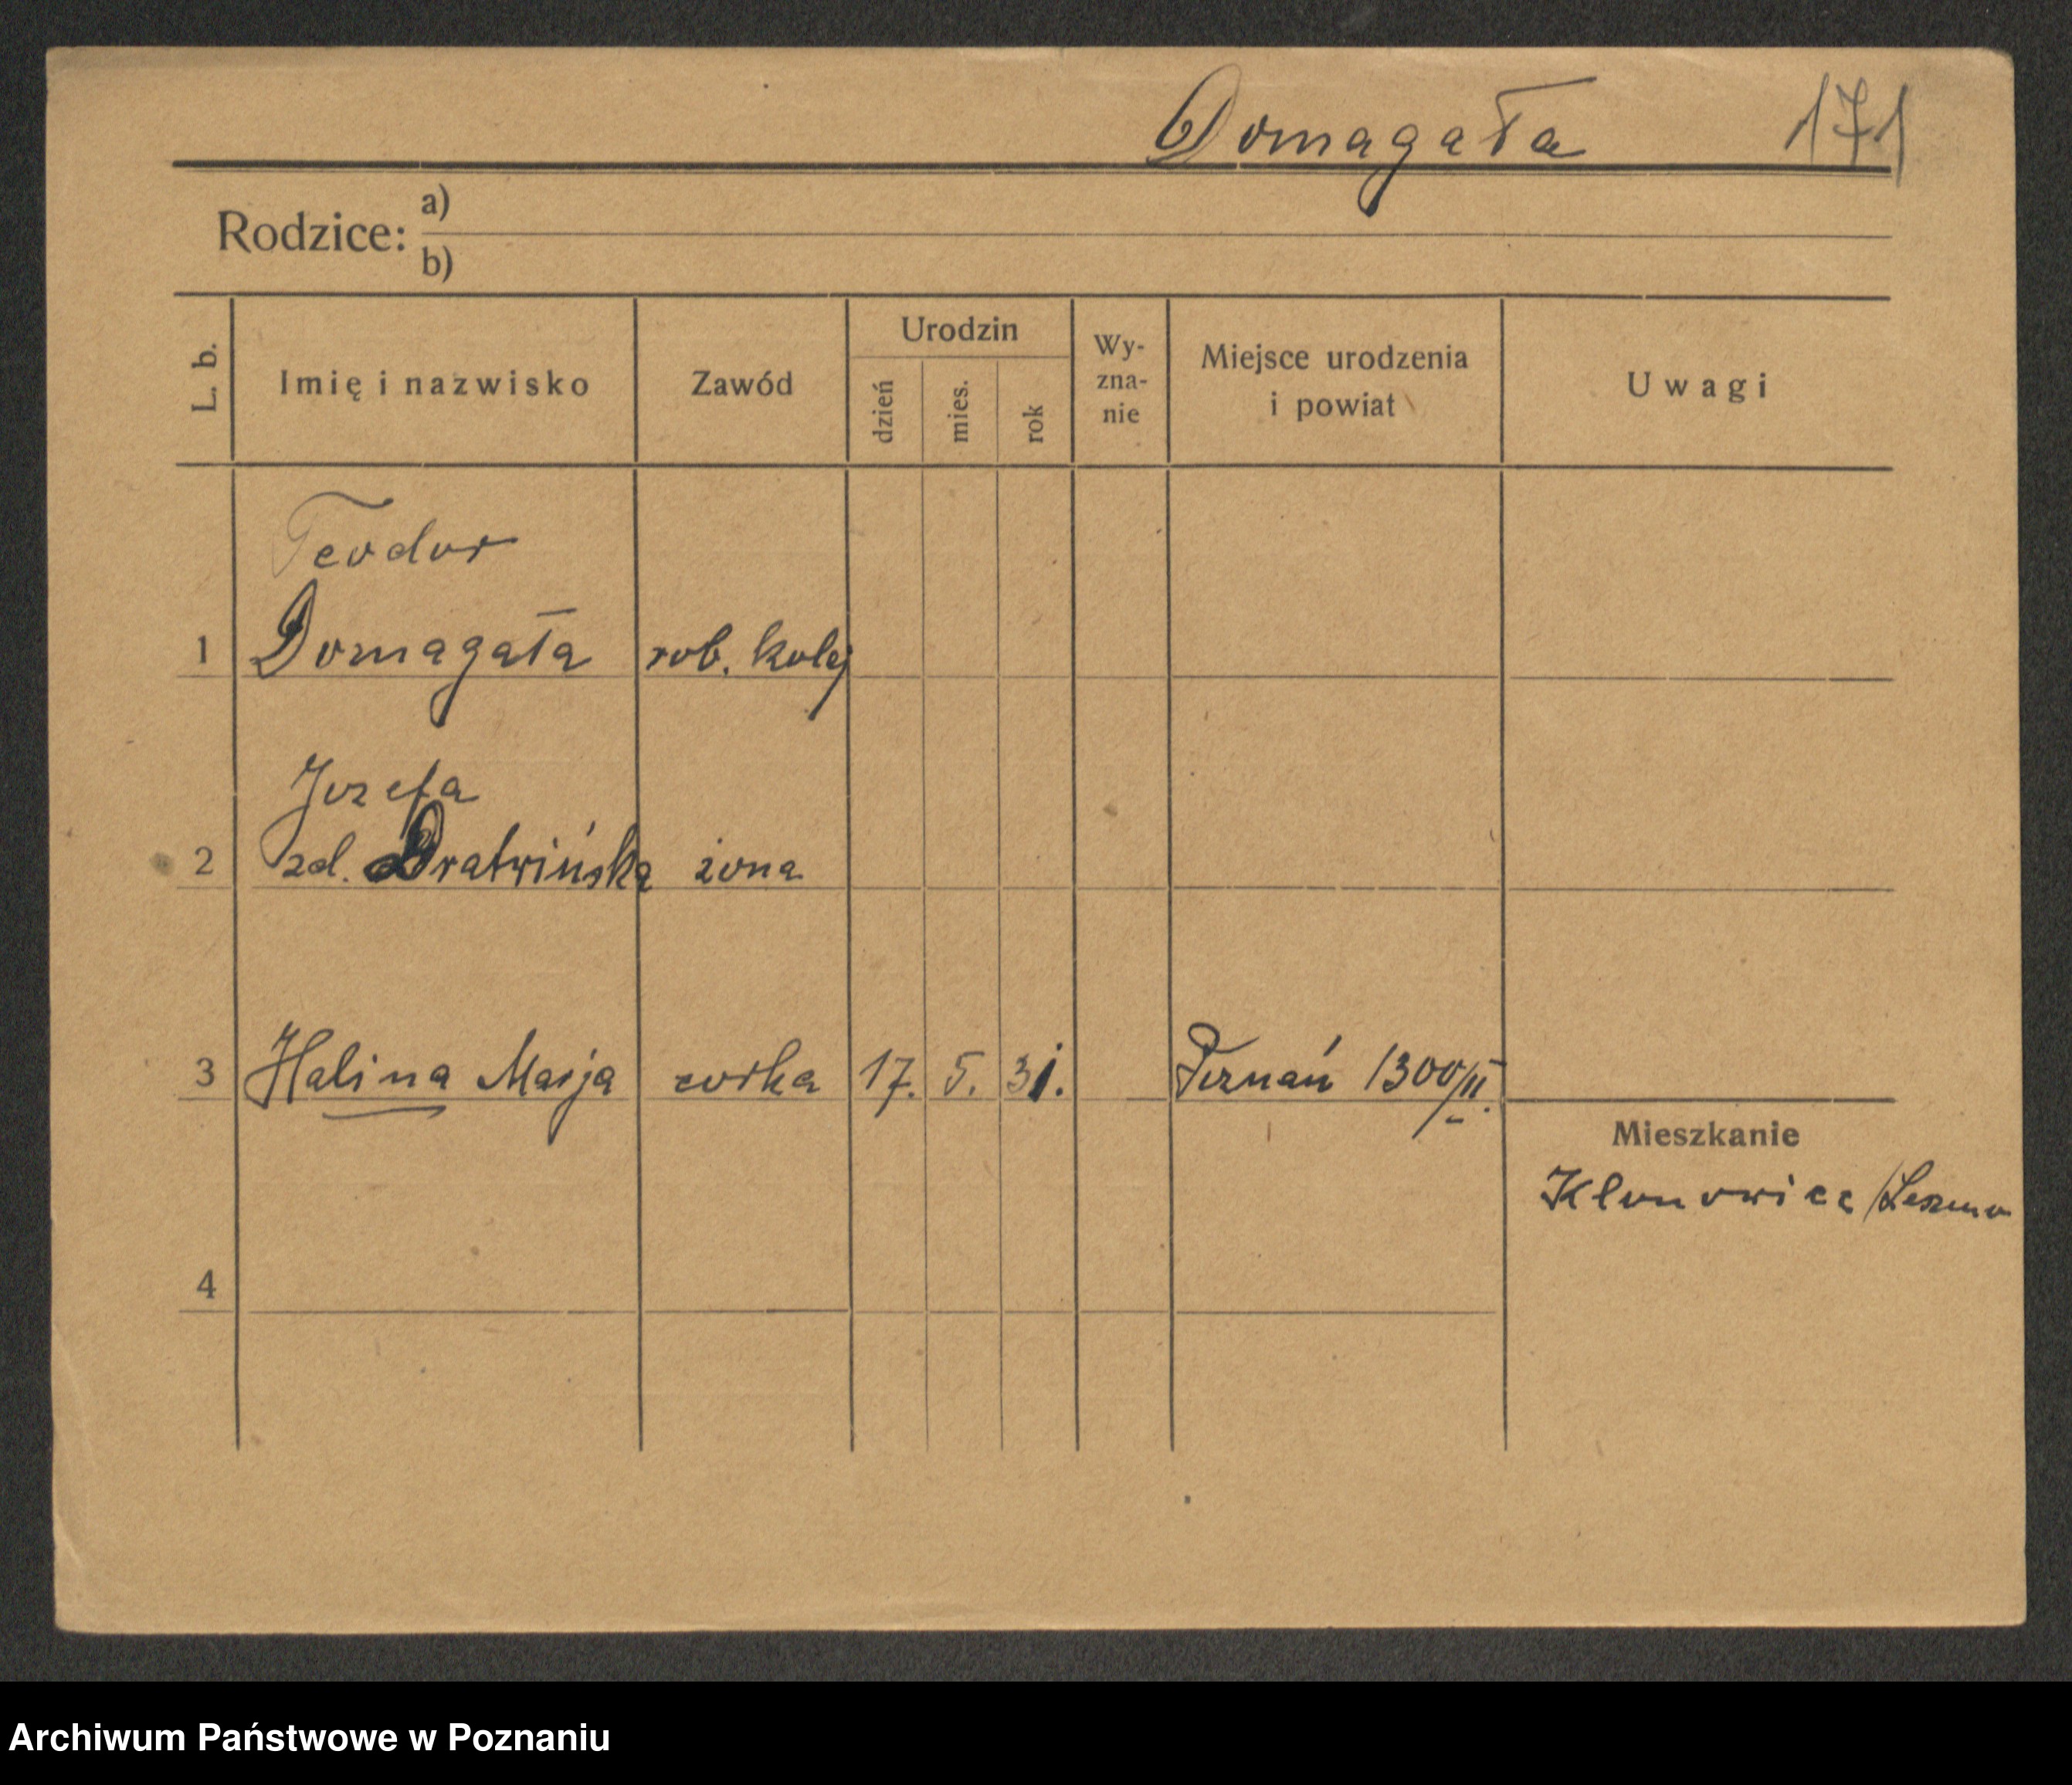 Domagała 171
Rodzice: a)
b)
L. b. Imię i nazwisko Zawód Urodzin dzień mies. rok Wy-zna-nie Miejsce urodzenia i powiat Uwagi
Teodor
1 Domagała rob. kolej
Jozefa
2 zd. Dratwińska żona
3 Halina Marja corka 17. 5. 31. Poznań 1300/II.
Mieszkanie
Klonowiec / Leszno
4
Archiwum Państwowe w Poznaniu